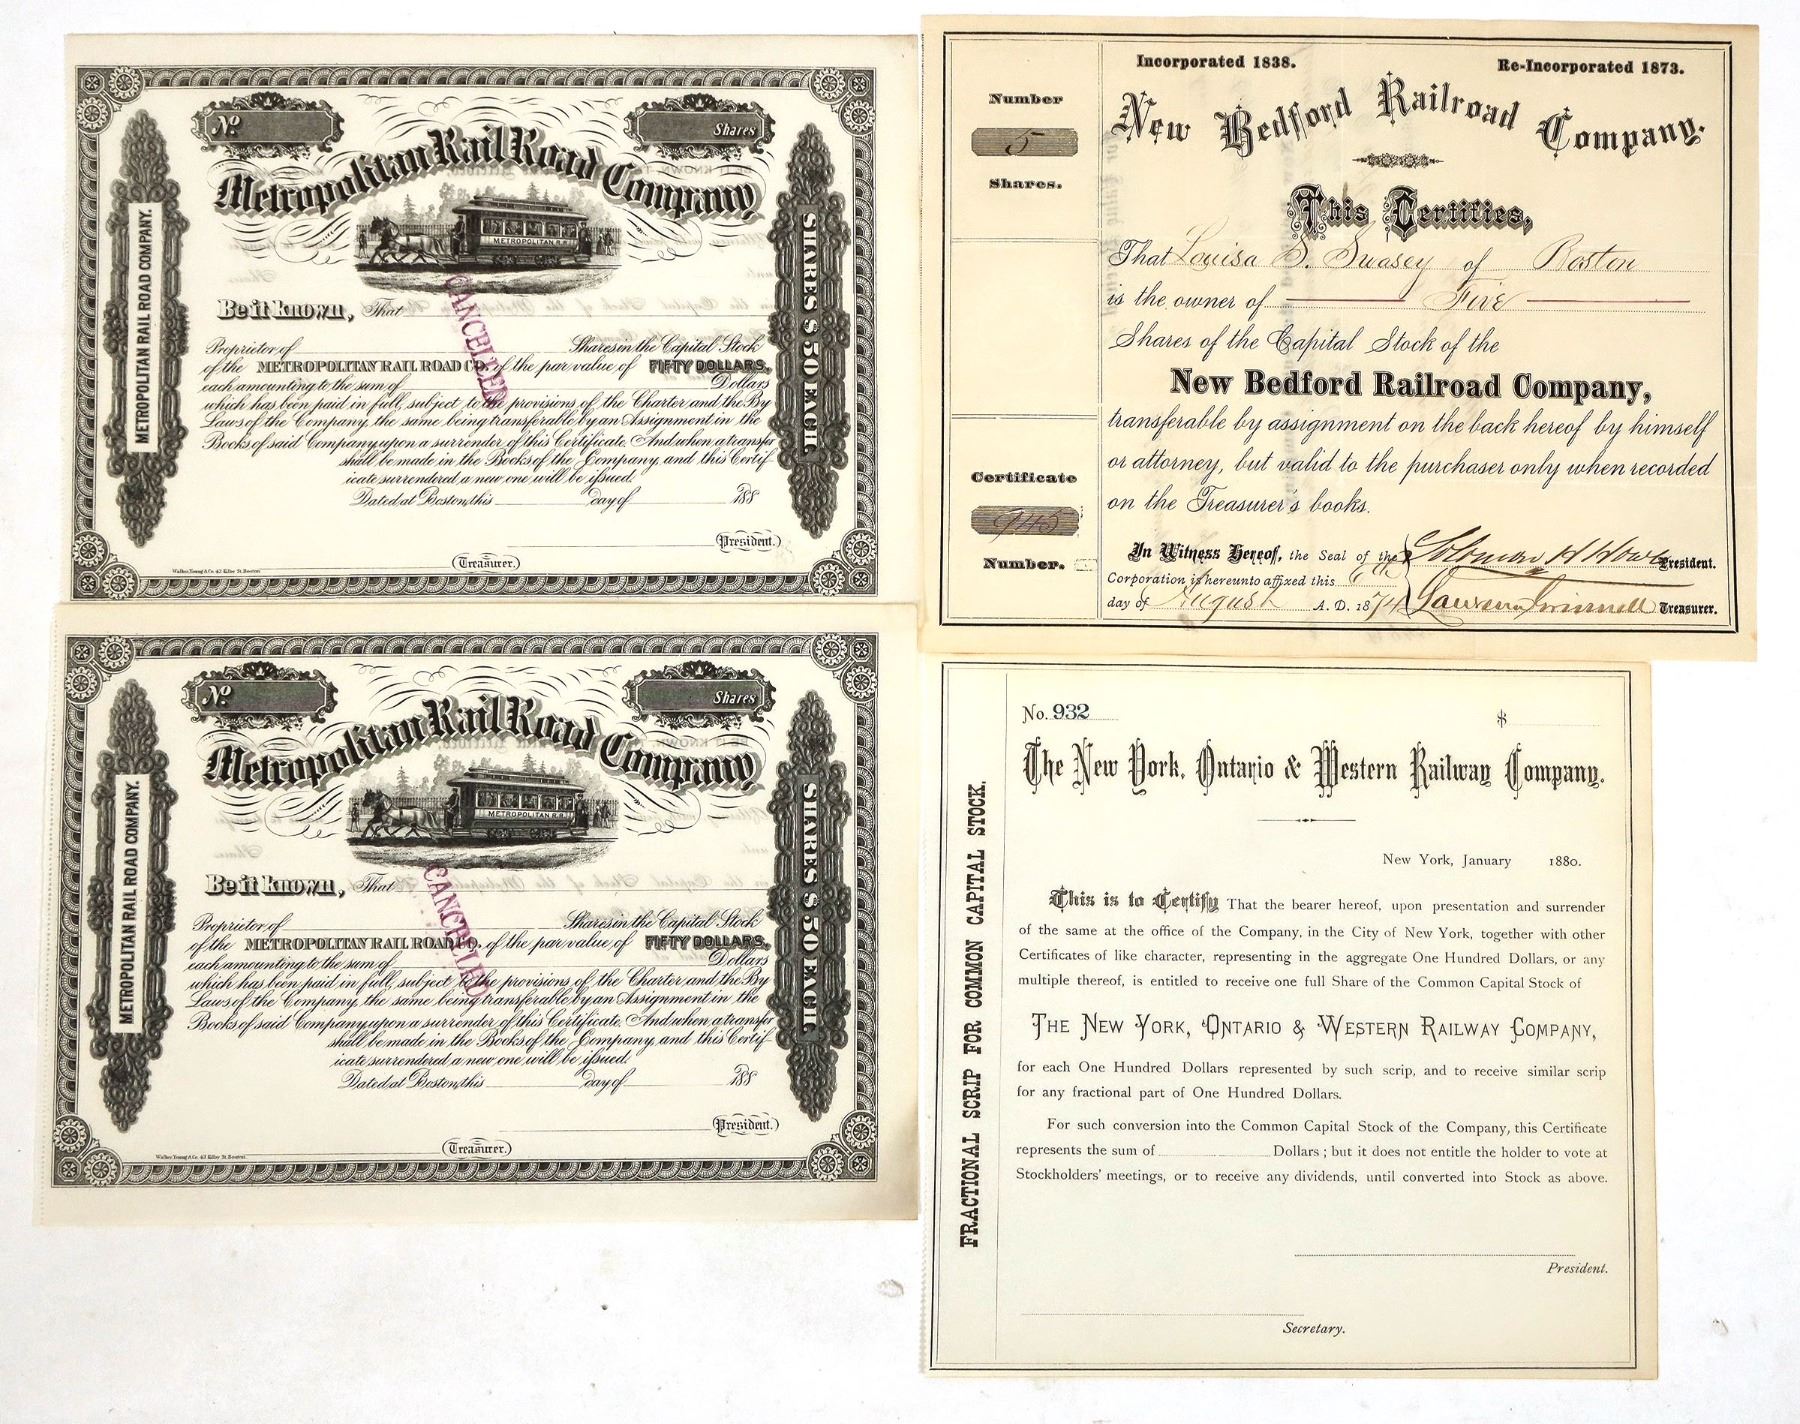 No.
Shares
Metropolitan Rail Road Company
METROPOLITAN R.R.
METROPOLITAN RAIL ROAD COMPANY.
SHARES $50 EACH.
CANCELLED
Be it known, That
Proprietor of Shares in the Capital Stock
of the METROPOLITAN RAIL ROAD CO. of the par value of FIFTY DOLLARS,
each amounting to the sum of Dollars
which has been paid in full, subject to the provisions of the Charter and the By
Laws of the Company, the same being transferable by an Assignment in the
Books of said Company upon a surrender of this Certificate. And when a transfer
shall be made in the Books of the Company, and this Certif-
icate surrendered a new one will be issued.
Dated at Boston, this day of 188
(President.)
(Treasurer.)
Walker Young & Co. 43 Kilby St. Boston.
No.
Shares
Metropolitan Rail Road Company
METROPOLITAN R.R.
METROPOLITAN RAIL ROAD COMPANY.
SHARES $50 EACH.
CANCELLED
Be it known, That
Proprietor of Shares in the Capital Stock
of the METROPOLITAN RAIL ROAD CO. of the par value of FIFTY DOLLARS,
each amounting to the sum of Dollars
which has been paid in full, subject to the provisions of the Charter and the By
Laws of the Company, the same being transferable by an Assignment in the
Books of said Company upon a surrender of this Certificate. And when a transfer
shall be made in the Books of the Company, and this Certif-
icate surrendered a new one will be issued.
Dated at Boston, this day of 188
(President.)
(Treasurer.)
Walker Young & Co. 43 Kilby St. Boston.
Incorporated 1838. Re-Incorporated 1873.
Number
5
Shares.
Certificate
945
Number.
New Bedford Railroad Company.
This Certifies,
That Louisa S. Swasey of Boston
is the owner of Five
Shares of the Capital Stock of the
New Bedford Railroad Company,
transferable by assignment on the back hereof by himself
or attorney, but valid to the purchaser only when recorded
on the Treasurer's books.
In Witness Hereof, the Seal of the
Corporation is hereunto affixed this 6th
day of August A. D. 1874
President.
Lawrence Grinnell Treasurer.
No. 932 $
The New York, Ontario & Western Railway Company.
FRACTIONAL SCRIP FOR COMMON CAPITAL STOCK.
New York, January 1880.
This is to Certify That the bearer hereof, upon presentation and surrender
of the same at the office of the Company, in the City of New York, together with other
Certificates of like character, representing in the aggregate One Hundred Dollars, or any
multiple thereof, is entitled to receive one full Share of the Common Capital Stock of
THE NEW YORK, ONTARIO & WESTERN RAILWAY COMPANY,
for each One Hundred Dollars represented by such scrip, and to receive similar scrip
for any fractional part of One Hundred Dollars.
For such conversion into the Common Capital Stock of the Company, this Certificate
represents the sum of Dollars; but it does not entitle the holder to vote at
Stockholders' meetings, or to receive any dividends, until converted into Stock as above.
President.
Secretary.